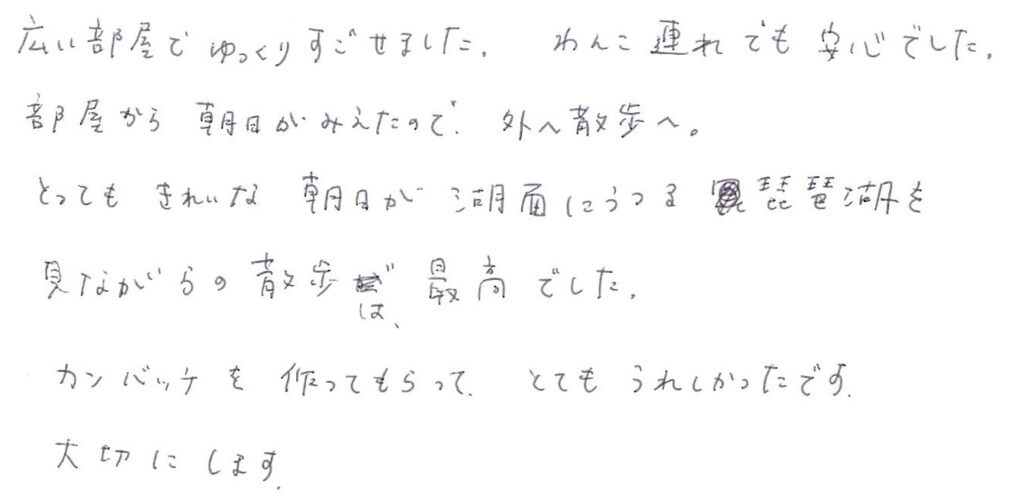 広い部屋でゆっくりすごせました。 わんこ連れでも安心でした。
部屋から朝日がみえたので、外へ散歩へ。
とってもきれいな朝日が湖面にうつる琵琶湖を
見ながらの散歩は、最高でした。
カンバッチを作ってもらって、とてもうれしかったです。
大切にします。